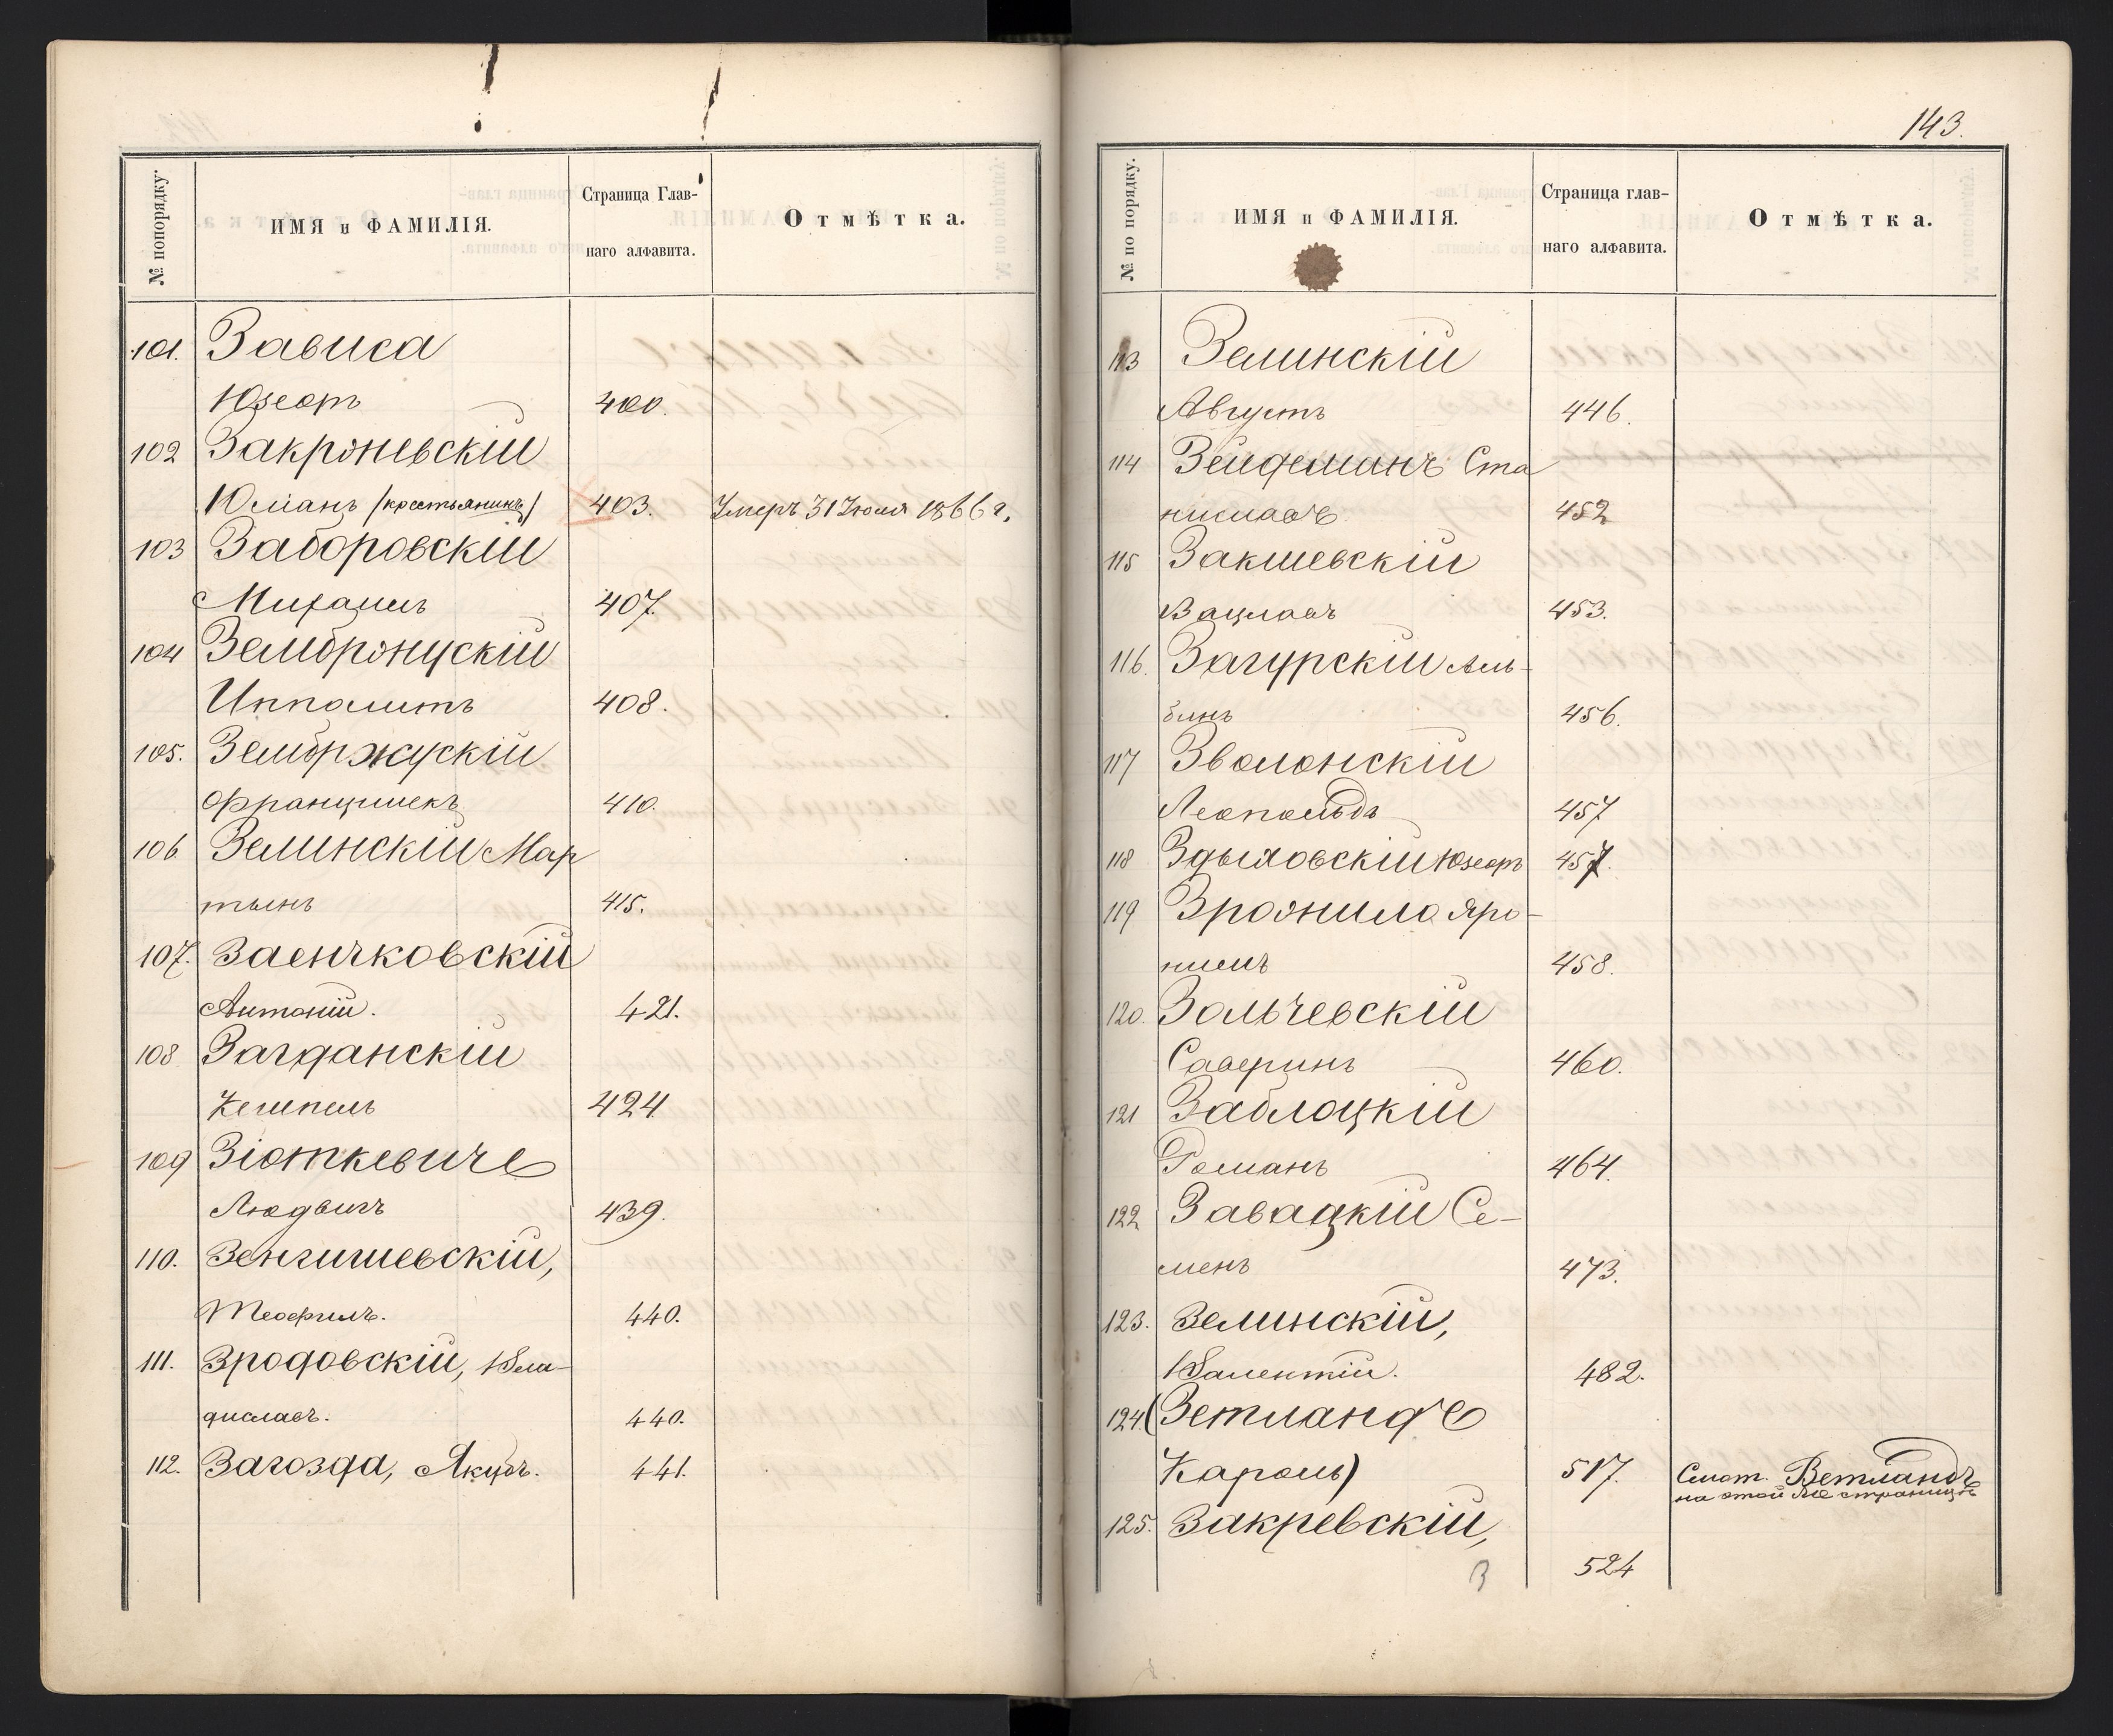 № попорядку.
ИМЯ и ФАМИЛІЯ.
Страница Глав-
наго алфавита.
Отмѣтка.
101. Зависа
Юзефъ 400.
102 Закржевскій
Юліанъ (крестьянинъ) 403. Умеръ 31 Июля 1866 г.
103 Заборовскій
Михаилъ 407.
104 Зембржускій
Ипполитъ 408.
105. Зембржускій
Францишекъ 410.
106 Зелинскій Мар
тынъ 415.
107. Заенчковскій
Антоній. 421.
108 Загданскій
424
109 Зіоткевичъ
Людвигъ 439.
110. Зенгишевскій,
Теофилъ. 440.
111. Зродовскій, Вла-
диславъ. 440.
112. Загозда, Якубъ. 441.
143.
№ по порядку.
ИМЯ и ФАМИЛІЯ.
Страница глав-
наго алфавита.
Отмѣтка.
113 Зелинскій
Августъ 446.
114 Зейдеманъ Ста
ниславъ 452
115 Закшевскій
Вацлавъ 453.
116. Загурскій Аль-
бинъ 456.
117 Зволонскій
Леопольдъ 457
118 Здыховскій Юзефъ 457.
119 Яро-
нимъ 458.
120. Зальчевскій
Саверинъ 460.
121 Заблоцкій
Романъ 464.
122 Завацкій Се-
менъ 473.
123. Зелинскій,
Валентій. 482.
124 (Зетландъ
Кароль) 517. Смот. Ветландъ
на этой же страницѣ
125. Закревскій,
524
З